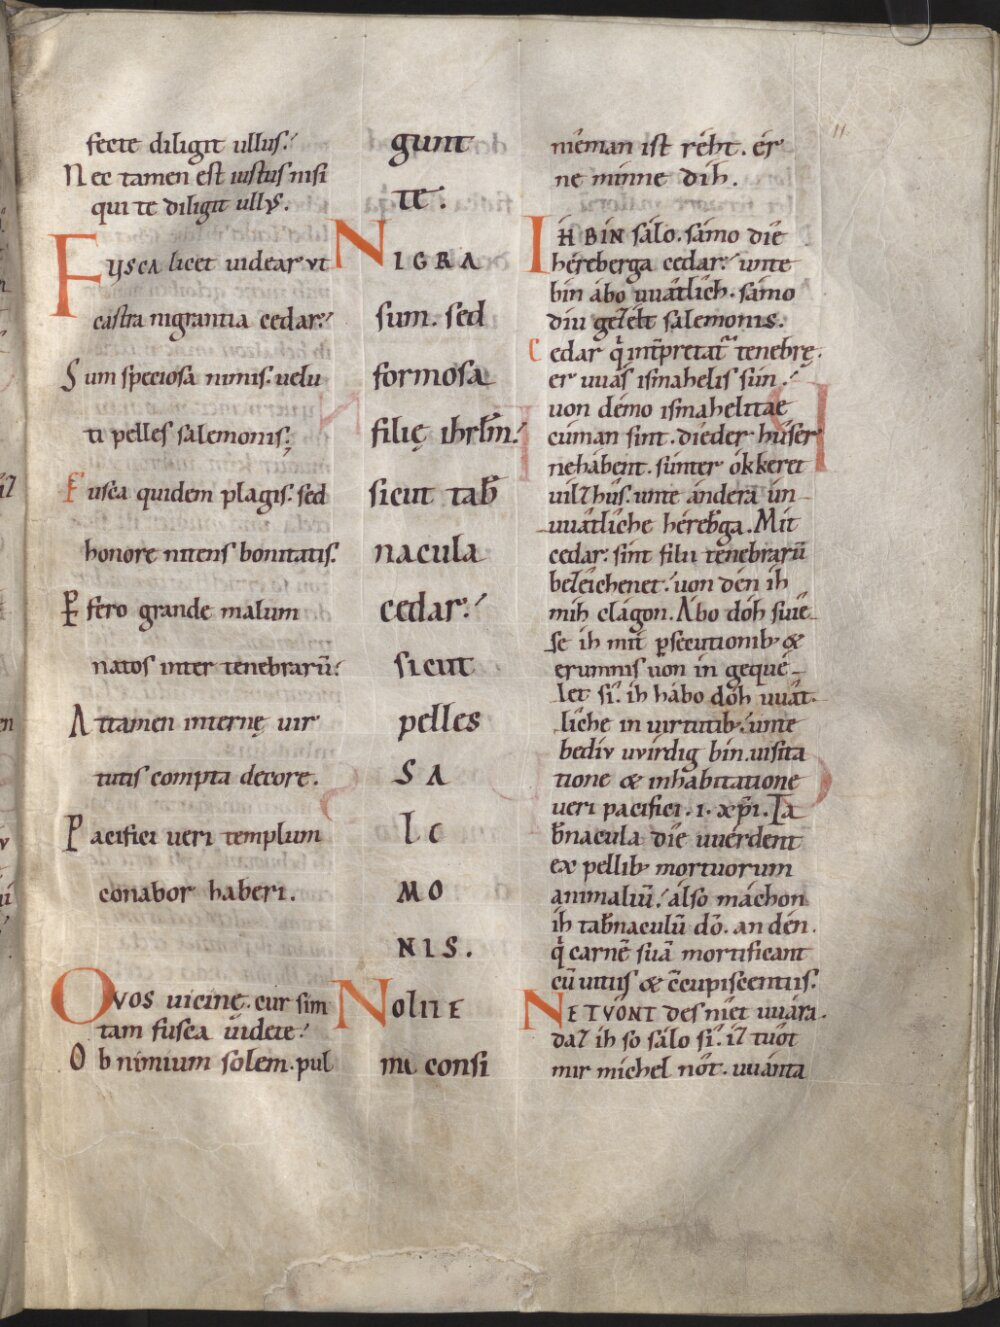 fecte diligit ullus.
Nec tamen est iustus nisi
qui te diligit ullus.
Fusca licet videar ut
castra nigrantia cedar.
Sum speciosa nimis. velu
ti pelles salemonis.
Fusca quidem plagis. sed
honore nitens bonitatis.
P̱fero grande malum
natos inter tenebrarū.
Attamen internę vir
tutis compta decore.
Pacifici veri templum
conabor haberi.
O vos vicinę. cur sim
tam fusca videte.
Ob nimium solem. pul
gunt
te.
NIGRA
sum. sed
formosa
filię ihrl̄m.
sicut tab̄
nacula
cedar.
sicut
pelles
SA
LO
MO
NIS.
Nolite
me consi
11
nîeman ist réht. êr
ne minne dih.
IH BIN sálo. sámo dîe
héreberga cedar. unte
bin ábo vvâtlich. sámo
diu gezélt salemonis.
Cedar q̇ int̄pretat᷑ tenebrę.
er vvás ismahelis sún.
von démo ismahelitae
cúman sint. dîeder hûser
nehábent. súnter ókkeret
vilzhûs. unte ándera ún
vvâtlîche héreb̄ga. Mit
cedar. sint filii tenebrarū
bezêichenet. von dén ih
mih clágon. Ábo dóh suîe
se ih mit p̱secutionib; &
erumnis von in gequé
let sî. ih hábo dóh vvât
lîche in virtutib; unte
bediv vvírdig bin. visita
tione & inhabitatione
veri pacifici. i. xp̄i. Ta
b̄nacula dîe vvérdent
ex pellib; mortuorum
animaliū. álso máchon
ih tab̄naculū dō. an dén.
q̇ carnē suā mortificant
cū vitiis & c̄cupiscentiis.
NE TVONT des nîet vvára.
daz ih so sálo sî. iz tûot
mir míchel nôt. vvánta